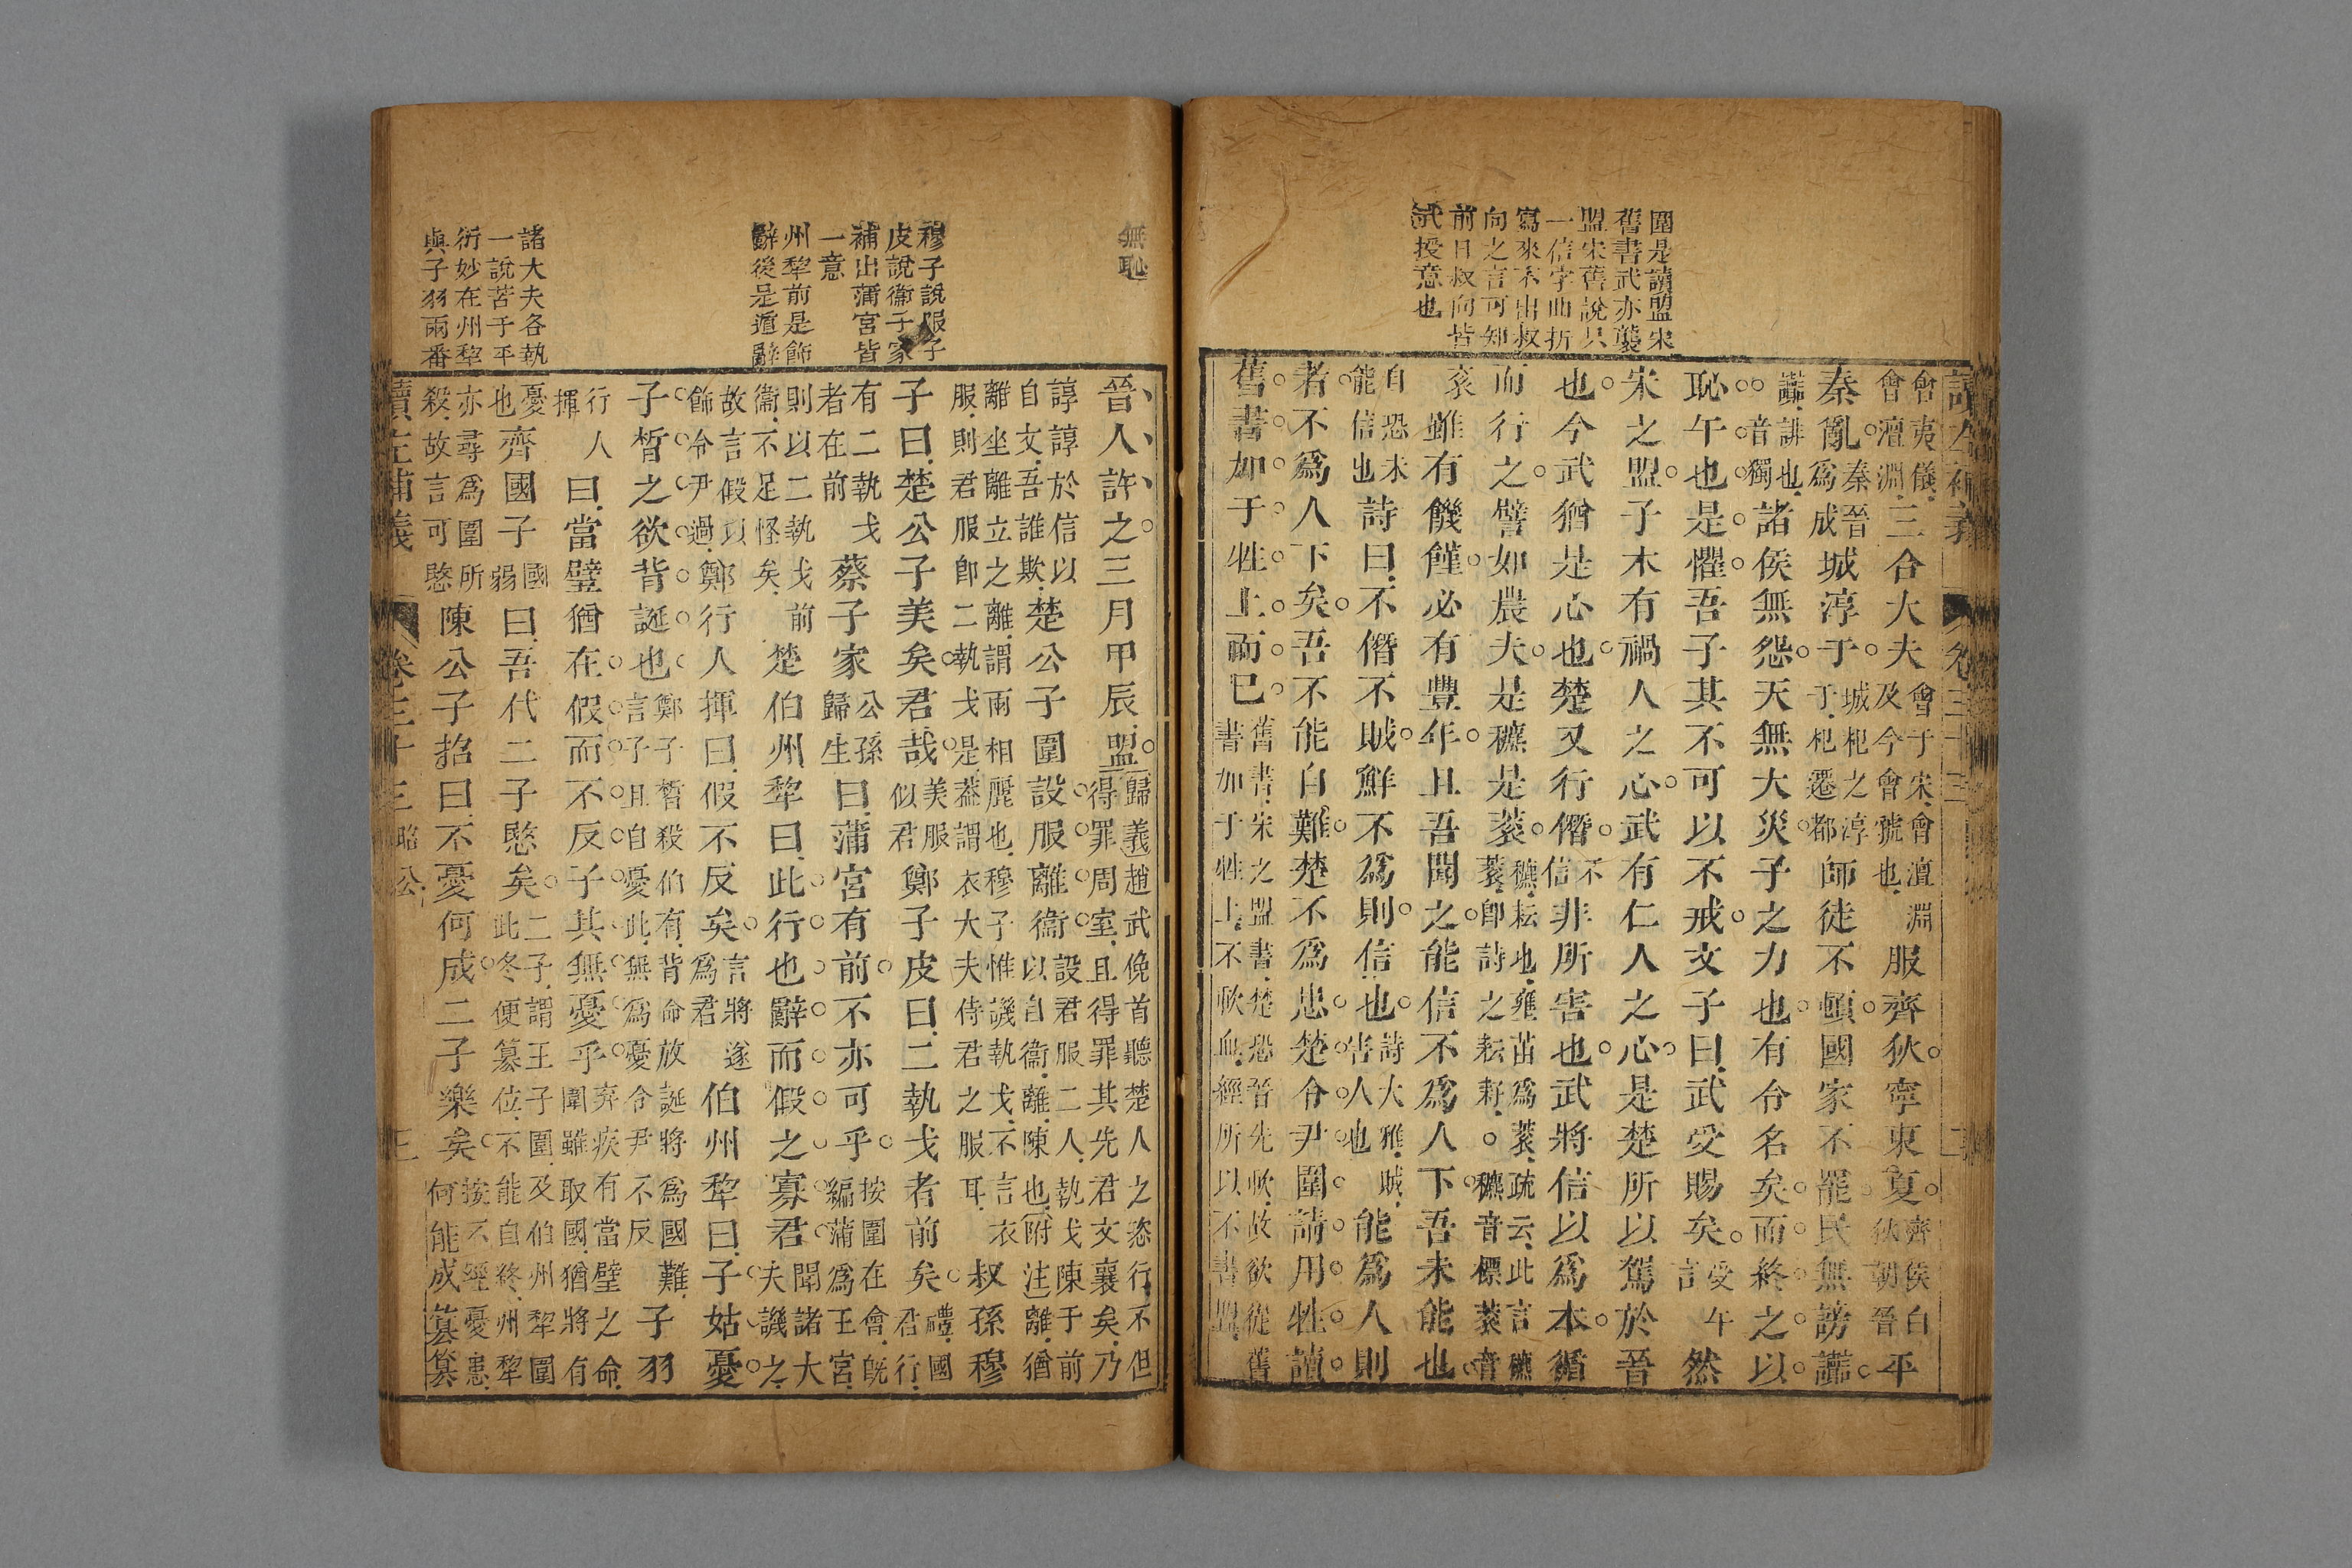 圍是讀盟宋
舊書武亦襲
盟宋舊說只
一信字曲折
寫來不出叔
向之言可知
前日叔向皆
武授意也
讀左補義 卷三十三 二
會夷儀會澶淵三合大夫會于宋會澶淵及今會虢也服齊狄寧東夏齊侯白狄朝晉平
秦亂秦晉為成城淳于城杞之淳于杞遷都師徒不頓國家不罷民無謗讟
讟誹也音獨諸侯無怨天無大災子之力也有令名矣而終之以
恥午也是懼吾子其不可以不戒文子曰武受賜矣受午言然
宋之盟子木有禍人之心武有仁人之心是楚所以駕於晉
也今武猶是心也楚又行僭不信非所害也武將信以為本循
而行之譬如農夫是穮是蓘穮耘也壅苗為蓘疏云此言穮蓘卽詩之耘耔。穮音標蓘音
袞雖有饑饉必有豐年且吾聞之能信不為人下吾未能也
自恐未能信也詩曰不僭不賊鮮不為則信也詩大雅賊害人也能為人則
者不為人下矣吾不能自難楚不為患楚令尹圍請用牲讀
舊書如于牲上而已舊書宋之盟書楚恐晉先歃故欲從舊書如于牲上不歃血經所以不書盟
無恥
穆子說服子
皮說衛子家
補出蒲宮皆
一意
州犂前是飾
辭後是遁辭
諸大夫各執
一說苦于平
衍妙在州犂
與子羽兩番
晉人許之三月甲辰盟歸義趙武俛首聽楚人之恣行不但得罪周室且得罪其先君文襄矣乃
諄諄於信以自文吾誰欺楚公子圍設服離衛設君服二人執戈陳于前以自衛離陳也附注離猶
離坐離立之離謂兩相麗也穆子惟譏執戈不言衣服則君服卽二執戈是葢謂衣大夫侍君之服耳叔孫穆
子曰楚公子美矣君哉美服似君鄭子皮曰二執戈者前矣禮國君行
有二執戈者在前蔡子家公孫歸生曰蒲宮有前不亦可乎按圍在會旣編蒲為王宮
則以二執戈前衛不足怪矣楚伯州犂曰此行也辭而假之寡君聞諸大夫譏之
故言假以飾令尹過鄭行人揮曰假不反矣言將遂為君伯州犂曰子姑憂
子皙之欲背誕也鄭子皙殺伯有背命放誕將為國難言子且自憂此無為憂令尹不反子羽
行人揮曰當璧猶在假而不反子其無憂乎棄疾有當璧之命圍雖取國猶將有
憂也齊國子國弱曰吾代二子愍矣二子謂王子圍及伯州犂圍此冬便簒位不能自終州犂
亦尋為圍所殺故言可愍陳公子招曰不憂何成二子樂矣按不經憂患何能成簒簒
讀左補義 卷三十三 昭公 三